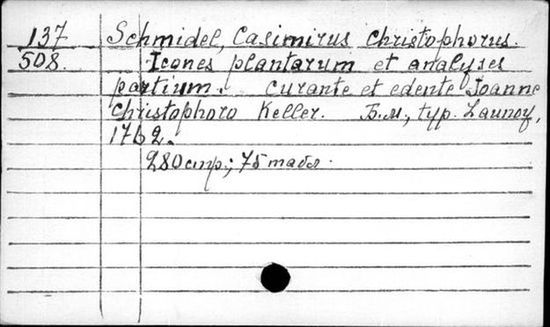 137 Schmidel, Casimirus Christophorus.
508. Icones plantarum et analyses
partium. curante et edente Joanne
Christophoro Keller. Б.м., typ. Launoy,
1762.
280 стр.; 75 табл.